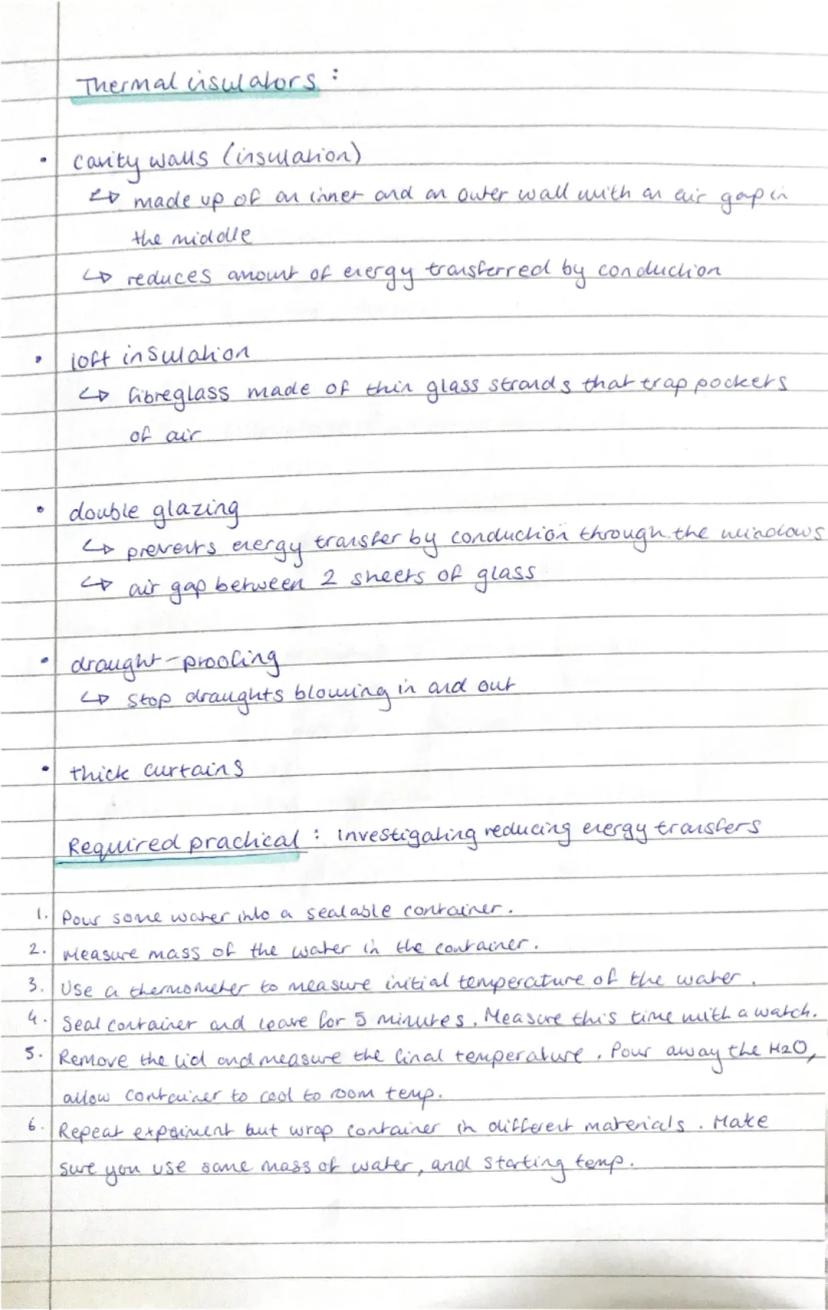 Thermal insulators :
• cavity walls (insulation)
↳ made up of an inner and an outer wall with an air gap in
the middle
↳ reduces amount of energy transferred by conduction
• loft insulation
↳ fibreglass made of thin glass strands that trap pockets
of air
• double glazing
↳ prevents energy transfer by conduction through the windows
↳ air gap between 2 sheets of glass
• draught-proofing
↳ stop draughts blowing in and out
• thick curtains
Required practical : investigating reducing energy transfers
1. Pour some water into a sealable container.
2. Measure mass of the water in the container.
3. Use a thermometer to measure initial temperature of the water.
4. Seal container and leave for 5 minutes. Measure this time with a watch.
5. Remove the lid and measure the final temperature. Pour away the H2O,
allow container to cool to room temp.
6. Repeat expeiment but wrap container in different materials. Make
sure you use same mass of water, and starting temp.